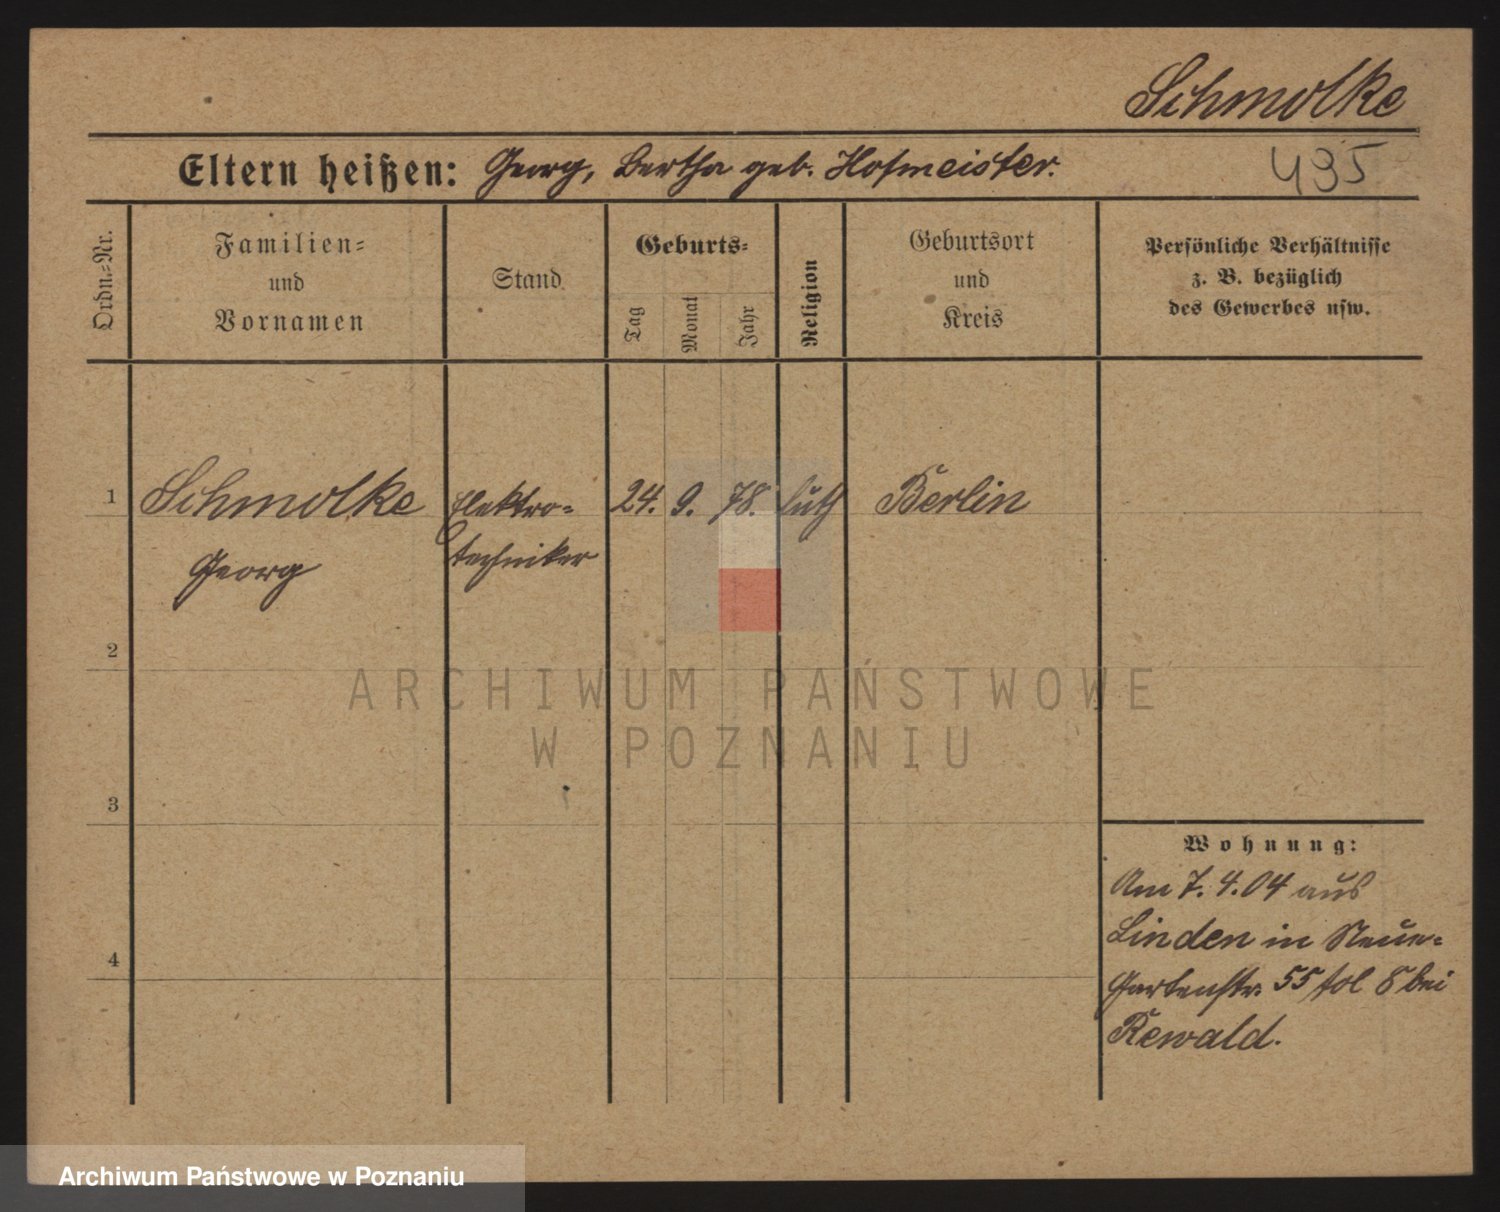 Schmolke
Eltern heißen: Georg, Bertha geb. Hofmeister.
495
Ordn.-Nr.
Familien-
und
Vornamen
Stand
Geburts-
Tag
Monat
Jahr
Religion
Geburtsort
und
Kreis
Persönliche Verhältnisse
z. B. bezüglich
des Gewerbes usw.
1 Schmolke Elektro- 24. 9. 78. luth Berlin
Georg techniker
2
3
4
Wohnung:
Am 7. 4. 04 aus
Linden in Neue-
Gartenstr. 55 bei
Rewald.
ARCHIWUM PAŃSTWOWE
W POZNANIU
Archiwum Państwowe w Poznaniu